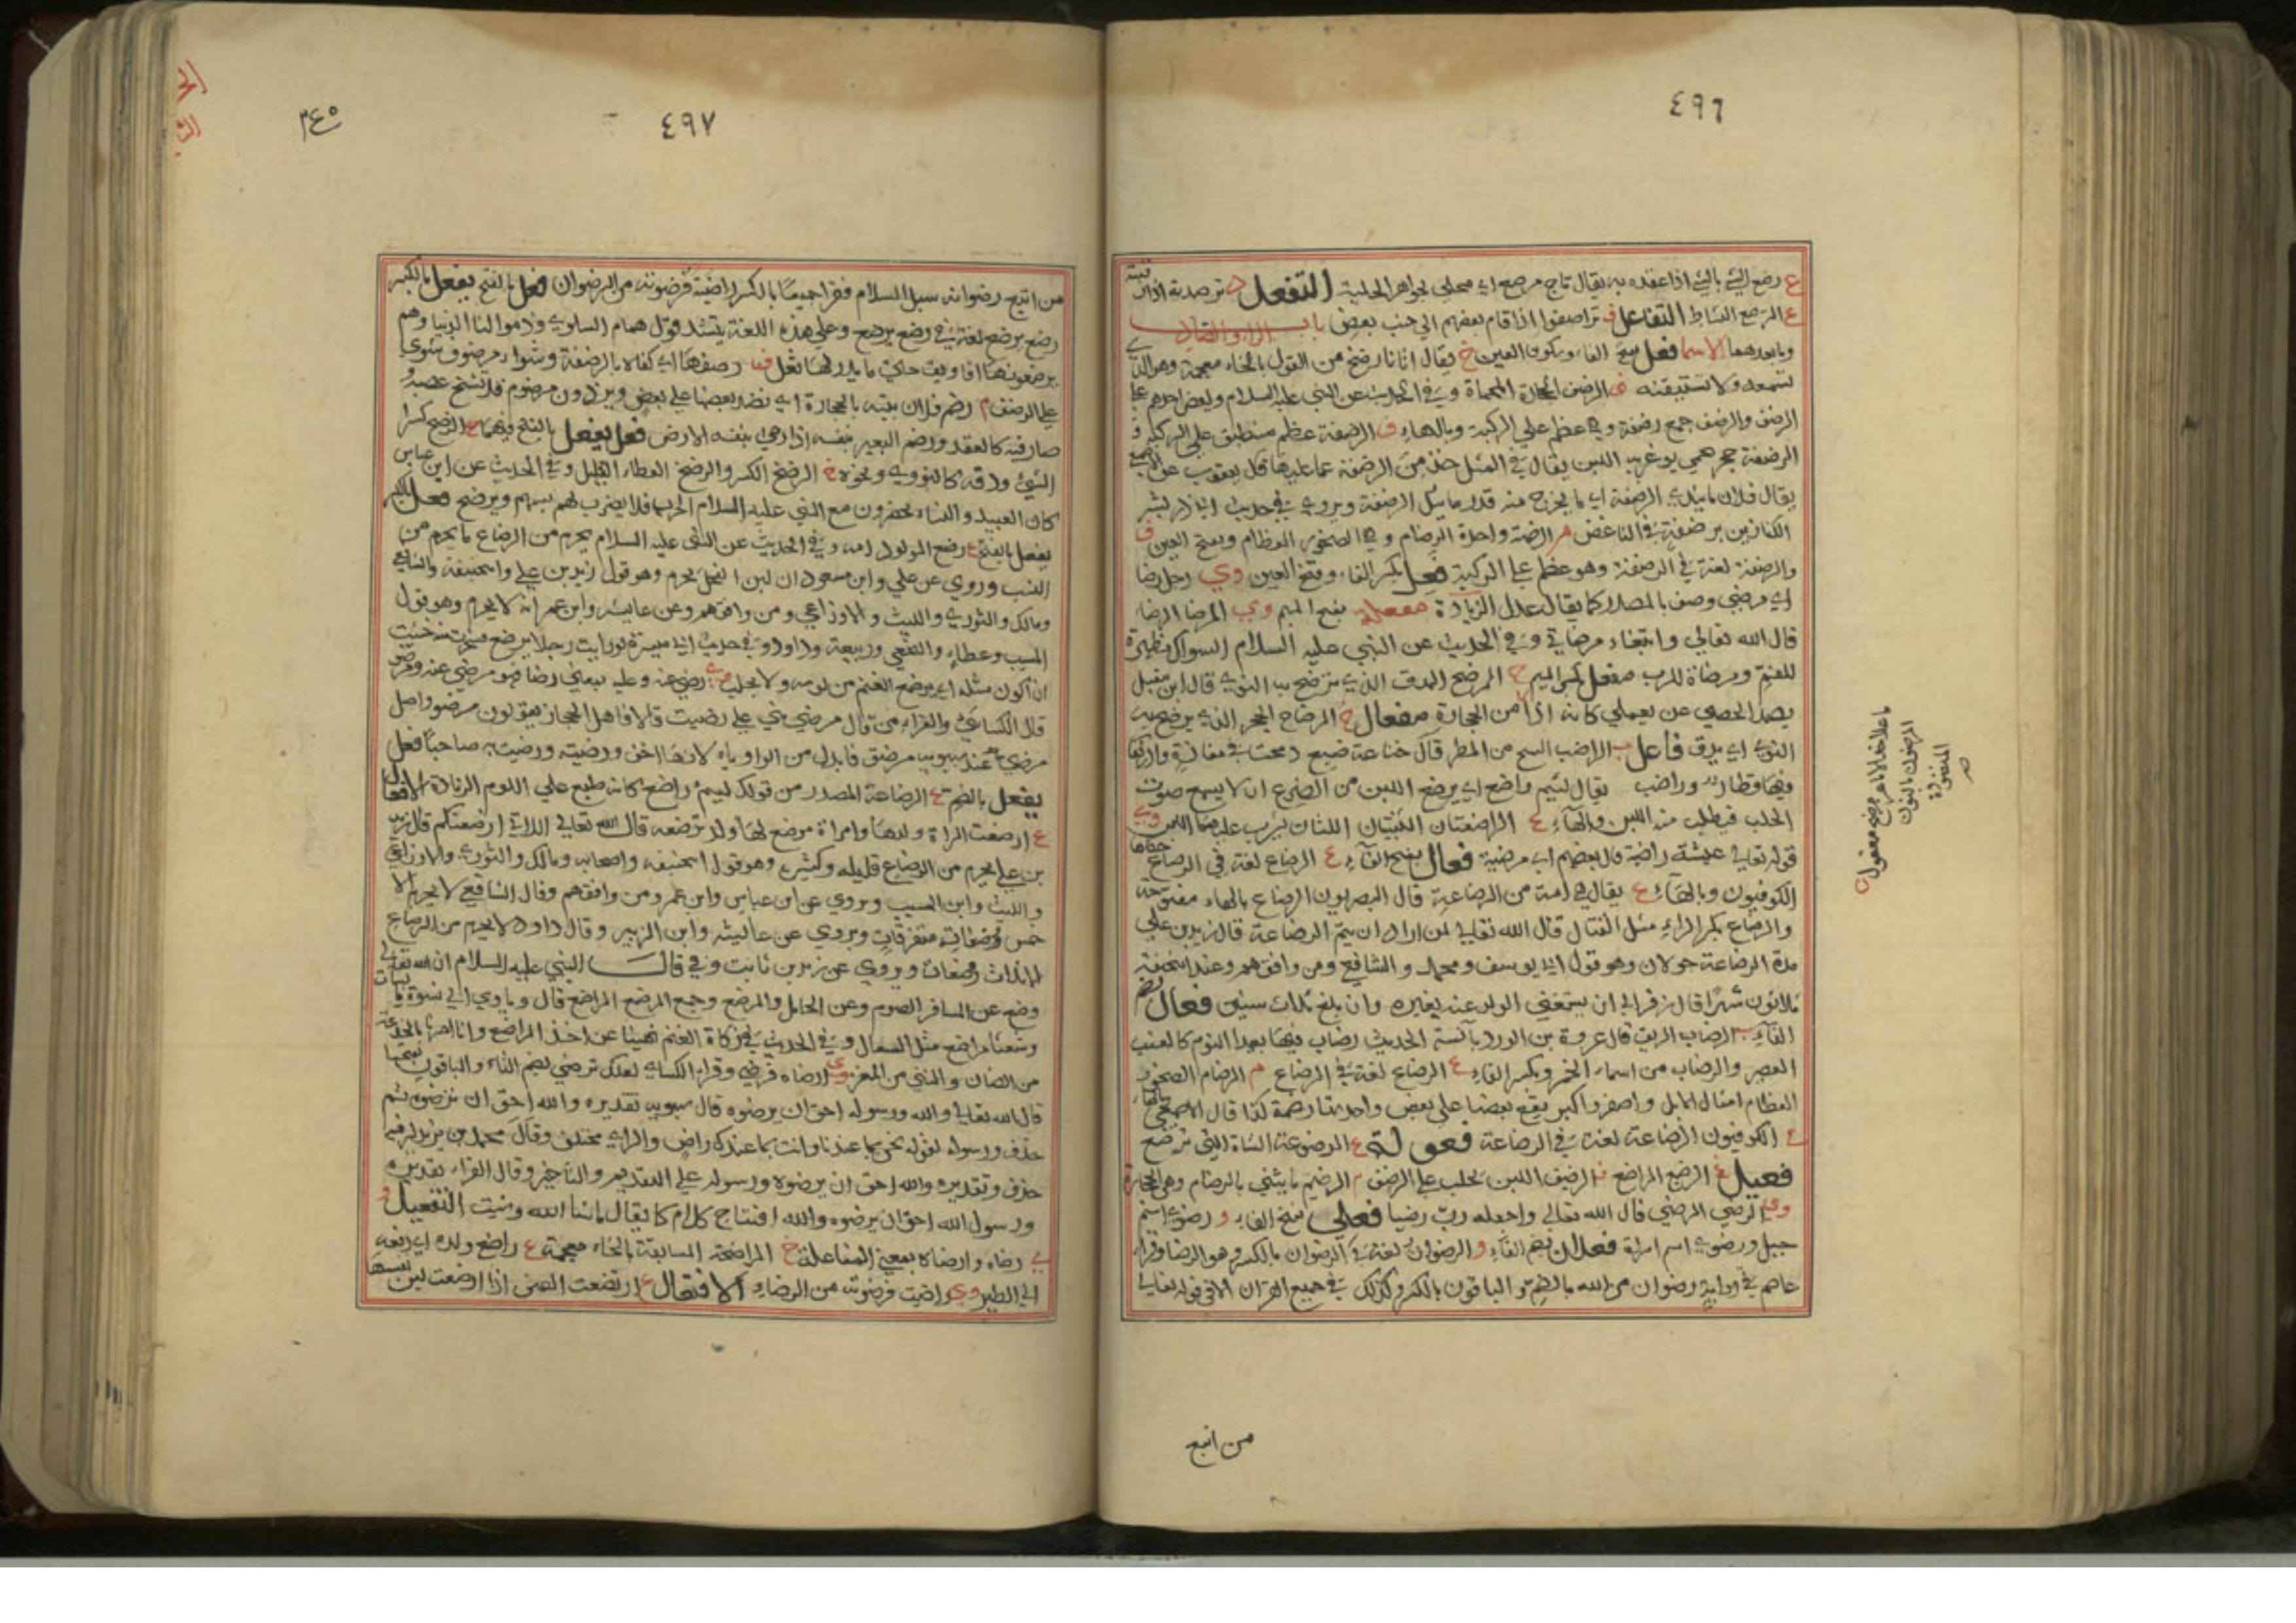 ٤٩٦
ع رصع الشي بالشي اذا عقده به يقال تاج مرصع اي محلى بجواهر الحلية التفعل د ترصدته اذا ترقبته
ع الترصع النشاط التفاعل ف تراصفوا اذا قام بعضهم الي جنب بعض باب الراء والضاد
وما بعدهما الاسما فعل بفتح الفاء وسكون العين خ يقال اتانا رضخ من القول بالخاء معجمة وهو الذي
تسمعه ولا تستيقنه ف الرضف الحجارة المحماة وفي الحديث عن النبي عليه السلام
الرضف والرضف جمع رضفة وهي عظم علي الركبة وبالهاء ف الرضفة عظم منطبق علي الركبة و
الرضفة حجر يحمى يوغر به اللبن يقال في المثل خذ من الرضفة ما عليها قال يعقوب
يقال فلان ما يندي الرضفة اي ما يخرج منه قدر ما يبل الرضفة ويروى في حديث ابي ذر بشر
الكنازين برضفة في الناغض م الرضمة واحدة الرضام وهي الصخور العظام وبفتح العين ف
والرضفة لغة في الرضفة وهو عظم علي الركبة فعل بكسر الفاء وفتح العين وي رجل رضا
اي مرضي وصف بالمصدر كما يقال عدل الزيادة مفعلة بفتح الميم وي المرضا الرضا
قال الله تعالي وابتغاء مرضاتي وفي الحديث عن النبي عليه السلام السواك مطهرة
للفم ومرضاة للرب مفعل بكسر الميم ح المرضح المدق الذي ترضح به النوى قال ابن مقبل
يصد الحصى عن يعملي كانه اذا من الحجارة مفعال ح المرضاح الحجر الذي يرضح به
النوى اي يدق فاعل ب الراضب السح من المطر قال خناعة ضبع دمجت في مغارة وادركها
فيها قطار وراضب يقال لئيم راضع اي يرضع اللبن من الضرع ان لا يسمع صوت
الحلب فيطلب منه اللبن وبالهاء ع الراضعتان الثنيتان اللتان يشرب عليهما اللبن وي
قوله تعالي عيشة راضية قال بعضهم اي مرضية فعال بفتح الفاء ع الرضاع لغة في الرضاع حكاها
الكوفيون وبالهاء ع يقال هي امه من الرضاعة قال البصريون الرضاع بالهاء مفتوحة
والرضاع بكسر الراء مثل القتال قال الله تعالي لمن اراد ان يتم الرضاعة قال زيد بن علي
مدة الرضاعة حولان وهو قول ابي يوسف ومحمد والشافعي ومن وافقهم وعند ابي حنيفة
ثلاثون شهرا قال زفر الي ان يستغني الولد عنه بغيره وان بلغ ثلاث سنين فعال بضم
الفاء ب الرضاب الريق قال عروة بن الورد بآنسة الحديث رضاب فيها بعد النوم كالعنب
العصير والرضاب من اسماء الخمر وبكسر الفاء ع الرضاع لغة في الرضاع م الرضام الصخور
العظام امثال الابل واصغر واكبر يقع بعضها على بعض واحدتها رضمة كذا قال الاصمعي وبالهاء
ع الكوفيون الرضاعة لغة في الرضاعة فعولة ع الرضوعة الشاة التي ترضع
فعيل ع الرضيع المراضع ف الرضيف اللبن يحلب على الرضف م الرضيم ما يبنى بالرضام وهي الحجارة
وي الرضي المرضي قال الله تعالي واجعله رب رضيا فعلي بفتح الفاء و رضوى اسم
جبل ورضوى اسم امراة فعلان بضم الفاء و الرضوان لغة في الرضوان بالكسر وهو الرضا وقراء
عاصم في رواية رضوان من الله بالضم والباقون بالكسر وكذلك في جميع القران الا في قوله تعالي
من اتبع
٤٩٧
من اتبع رضوانه سبل السلام فقرا جميعا بالكسر راضيته فرضوته من الرضوان فعل بالفتح يفعل بالكسر
رضع يرضع لغة في رضع يرضع وعلى هذه اللغة ينشد قول همام السلولي وذموا لنا الدنيا وهم
يرضعونها افاويق حتى ما يدر لها ثعل ف رضفها اي كواه بالرضفة وشواء مرضوف مشوي
علي الرضف م رضم فلان بيته بالحجارة اي نضد بعضها علي بعض وبرذون مرضوم قد تشنج عصبه و
صار فيه كالعقد ورضم البعير بنفسه اذا رمى بنفسه الارض فعل يفعل بالفتح فيهما ح الرضح كسر
الشيئ ودقه كالنوى ونحوه خ الرضخ الكسر والرضخ العطاء القليل وفي الحديث عن ابن عباس
كان العبيد والنساء يحضرون مع النبي عليه السلام الحرب فلا يضرب لهم بسهم ويرضخ فعل بالكسر
يفعل بالفتح ع رضع المولود امه وفي الحديث عن النبي عليه السلام يحرم من الرضاع ما يحرم من
النسب وروي عن علي وابن مسعود ان لبن الفحل يحرم وهو قول زيد بن علي وابي حنيفة والشافعي
ومالك والثوري والليث والاوزاعي ومن وافقهم وعن عايشة وابن عمر انه لا يحرم وهو قول
المسيب وعطاء والنخعي وربيعة وداود وفي حديث ابي ميسرة لو رايت رجلا يرضع فسخرت منه خشيت
ان اكون مثله اي يرضع الغنم من لومه ولا يحلب وي رضي عنه وعليه بمعنى رضا فهو مرضي عنه ومرضو
قال الكسائي والفراء من قال مرضي بني على رضيت قالا واهل الحجاز يقولون مرضو واصل
مرضي عند سيبويه مرضو فابدل من الواو ياء لانها اخف ورضيته ورضيت به صاحبا فعل
يفعل بالضم ع الرضاعة المصدر من قولك لئيم راضع كانه طبع علي اللوم الزيادة الافعال
ع ارضعت المراة ولدها وامراة مرضع لها ولد ترضعه قال الله تعالي اللاتي ارضعنكم قال زيد
بن علي يحرم من الرضاع قليله وكثيره وهو قول ابي حنيفه واصحابه ومالك والثوري والاوزاعي
والليث وابن المسيب ويروي عن ابن عباس وابن عمر ومن وافقهم وقال الشافعي لا يحرم الا
خمس رضعات متفرقات ويروي عن عائشه وابن الزبير وقال داود لا يحرم من الرضاع
الا ثلاث رضعات ويروي عن زيد بن ثابت وفي قال النبي عليه السلام ان الله تعالي
وضع عن المسافر الصوم وعن الحامل والمرضع وجمع المرضع المراضع قال ويأوي الي نسوة بائسات
وشعثا مراضع مثل السعالى وفي الحديث في زكاة الغنم نهينا عن اخذ المراضع وانما امرنا بالجذعة
من الضان والثني من المعز وي ارضاه فرضي وقراء الكسائي لعلك ترضى بضم التاء والباقون بفتحها
قال الله تعالى والله ورسوله احق ان يرضوه قال سيبويه تقديره والله احق ان يرضوه ثم
حذف ورسوله لقوله نحن بما عندنا وانت بما عندك راض والراي مختلف وقال محمد بن يزيد ليس فيه
حذف وتقديره والله احق ان يرضوه ورسوله على التقديم والتأخير وقال الفراء تقديره
ورسول الله احق ان يرضوه والله افتتاح كلام كما يقال ما شاء الله وشئت التفعيل و
ي رضاه وارضاه بمعنى المفاعلة خ المراضخة المسابقة بالخاء معجمة ع راضع ولده اي دفعه
الي الظير وي راضيت فرضوته من الرضاء الافتعال ع ارتضعت العنز اذا ارضعت لبن نفسها